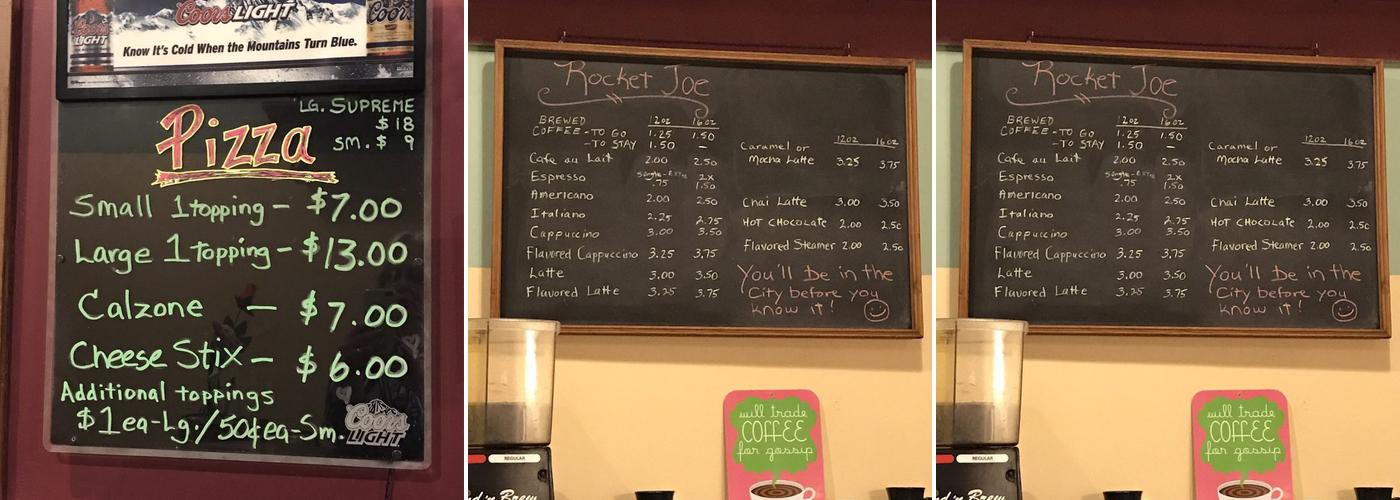 Coors LIGHT
Coors LIGHT
Coors
Know It's Cold When the Mountains Turn Blue.
LG. SUPREME
$18
Pizza
sm. $ 9
Small 1 topping - $7.00
Large 1 topping - $13.00
Calzone - $7.00
Cheese Stix - $6.00
Additional toppings
$1ea-Lg./50¢ea-Sm.
Coors LIGHT
Rocket Joe
BREWED 12oz 16oz
COFFEE - TO GO 1.25 1.50
- TO STAY 1.50 —
Cafe au Lait 2.00 2.50
Espresso Single 2x
.75 1.50
Americano 2.00 2.50
Italiano 2.25 2.75
Cappuccino 3.00 3.50
Flavored Cappuccino 3.25 3.75
Latte 3.00 3.50
Flavored Latte 3.25 3.75
12oz 16oz
Caramel or
Mocha Latte 3.25 3.75
Chai Latte 3.00 3.50
HOT CHOCOLATE 2.00 2.50
Flavored Steamer 2.00 2.50
You'll be in the
City before you
know it!
REGULAR
will trade
COFFEE
for gossip
Rocket Joe
BREWED 12oz 16oz
COFFEE - TO GO 1.25 1.50
- TO STAY 1.50 —
Cafe au Lait 2.00 2.50
Espresso Single 2x
.75 1.50
Americano 2.00 2.50
Italiano 2.25 2.75
Cappuccino 3.00 3.50
Flavored Cappuccino 3.25 3.75
Latte 3.00 3.50
Flavored Latte 3.25 3.75
12oz 16oz
Caramel or
Mocha Latte 3.25 3.75
Chai Latte 3.00 3.50
HOT CHOCOLATE 2.00 2.50
Flavored Steamer 2.00 2.50
You'll be in the
City before you
know it!
REGULAR
will trade
COFFEE
for gossip